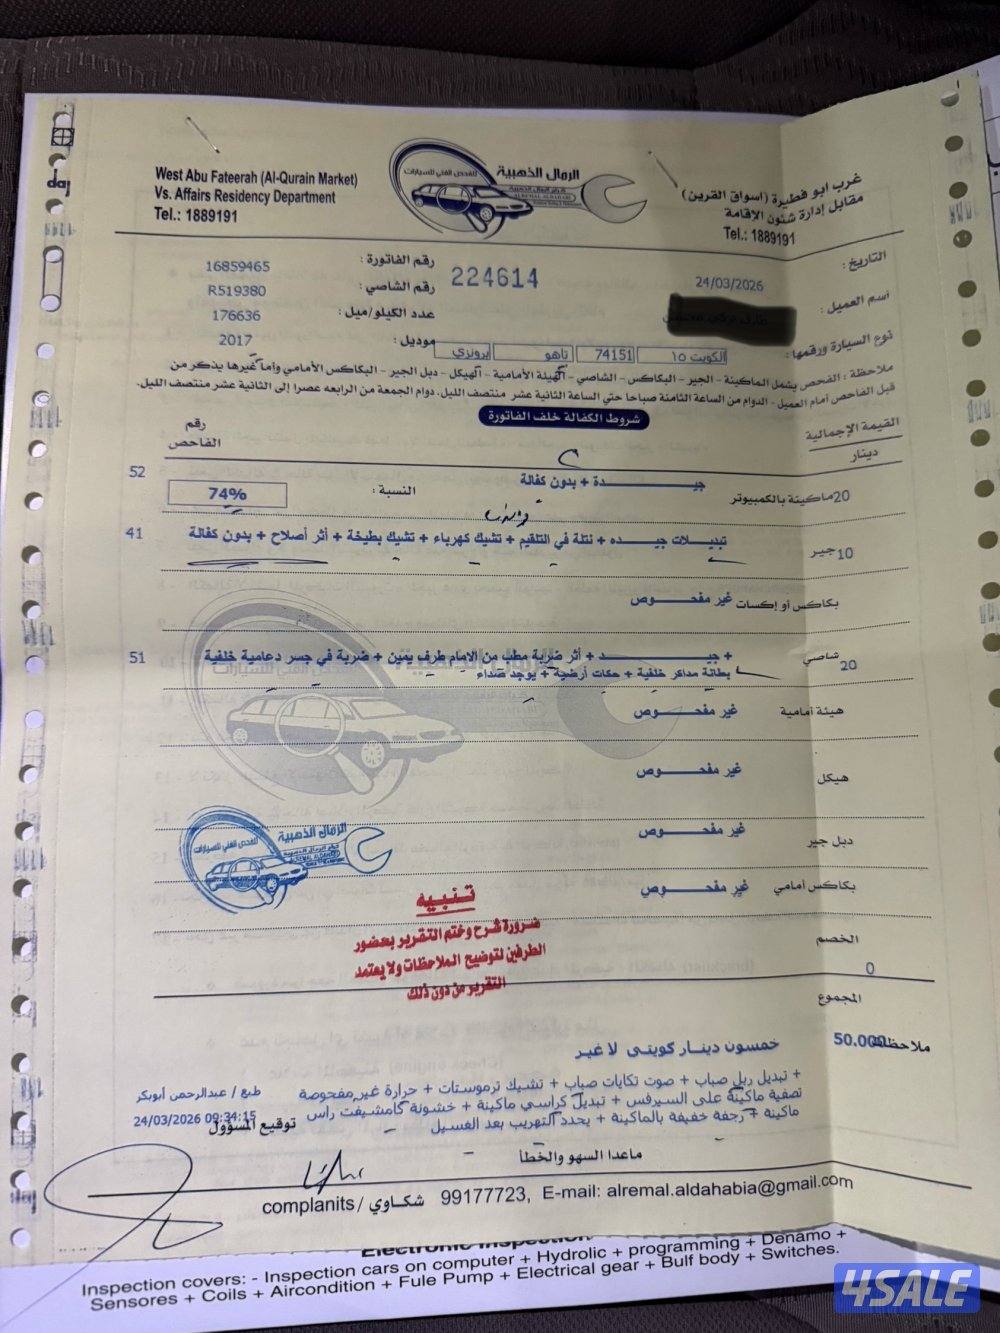 الرمال الذهبية
للفحص الفني للسيارات
كراج الرمال الذهبية
ALREMAL ALDAHABI
West Abu Fateerah (Al-Qurain Market)
Vs. Affairs Residency Department
Tel.: 1889191
غرب ابو فطيرة (اسواق القرين)
مقابل إدارة شئون الإقامة
Tel.: 1889191
التاريخ : 24/03/2026
224614
رقم الفاتورة : 16859465
اسم العميل :
رقم الشاصي : R519380
عدد الكيلو/ميل : 176636
نوع السيارة ورقمها : الكويت ١٥ 74151 تاهو برونزي
موديل : 2017
ملاحظة : الفحص يشمل الماكينة - الجير - البكاكس - الشاصي - الهيئة الأمامية - الهيكل - دبل الجير - البكاكس الأمامي وأما غيرها يذكر من
قبل الفاحص أمام العميل - الدوام من الساعة الثامنة صباحا حتي الساعة الثانية عشر منتصف الليل. دوام الجمعة من الرابعه عصرا إلى الثانية عشر منتصف الليل.
شروط الكفالة خلف الفاتورة
القيمة الإجمالية
دينار
رقم
الفاحص
20 ماكينة بالكمبيوتر جيــــدة + بدون كفالة النسبة : 74% 52
10 جير تبديـلات جيـده + نتلة في التلقيم + تشيك كهرباء + تشيك بطيخة + أثر أصلاح + بدون كفالة 41
بكاكس أو إكسات غير مفحــوص
20 شاصي + جيــــد + أثر ضربة مطب من الإمام طرف يمين + ضربة في جسر دعامية خلفية 51
بطانة مداكر خلفية + حكات أرضية + يوجد صداء
هيئة أمامية غير مفحــوص
هيكل غير مفحــوص
دبل جير غير مفحــوص
بكاكس أمامي غير مفحــوص
الرمال الذهبية
للفحص الفني للسيارات
تنبيه
ضرورة شرح وختم التقرير بحضور
الطرفين لتوضيح الملاحظات ولا يعتمد
التقرير من دون ذلك
الخصم
0
المجموع
50.000 خمسون دينار كويتى لا غير
ملاحظة
+ تبديل ربل صباب + صوت تكايات صباب + تشيك ترموستات + حرارة غير مفحوصة
تصفية ماكينة على السيرفس + تبديل كراسي ماكينة + خشونة كامشيفت راس
ماكينة + رجفة خفيفة بالماكينة + يحدد التهريب بعد الغسيل
طبع / عبدالرحمن أبوبكر
24/03/2026 09:34:15
توقيع المسؤول
ماعدا السهو والخطأ
complanits / شكاوي 99177723, E-mail: alremal.aldahabia@gmail.com
Electronic Inspection
Inspection covers: - Inspection cars on computer + Hydrolic + programming + Denamo +
Sensores + Coils + Aircondition + Fule Pump + Electrical gear + Bulf body + Switches.
4SALE